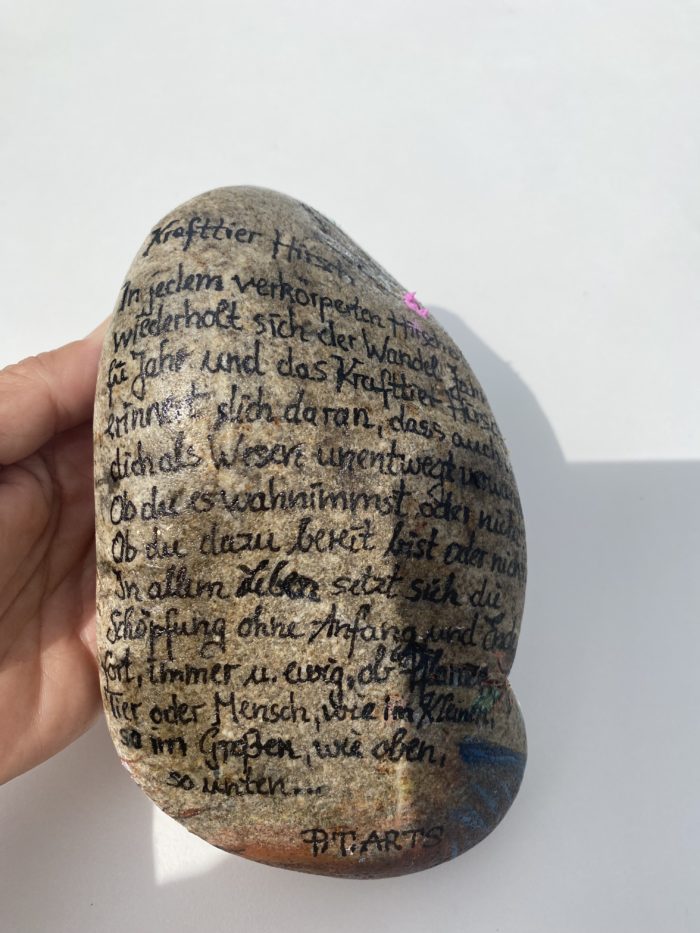 Krafttier Hirsch
In jedem verkörperten Hirsch
wiederholt sich der Wandel Jahr
für Jahr und das Krafttier Hirsch
erinnert dich daran, dass auch
dich als Wesen unentwegt
Ob du es wahnimmst oder nicht
Ob du dazu bereit bist oder nicht
In allem Leben setzt sich die
Schöpfung ohne Anfang und Ende
fort, immer u. ewig, ob Pflanze
Tier oder Mensch, wie im Kleinen,
so im Großen, wie oben,
so unten...
P.T. ARTS